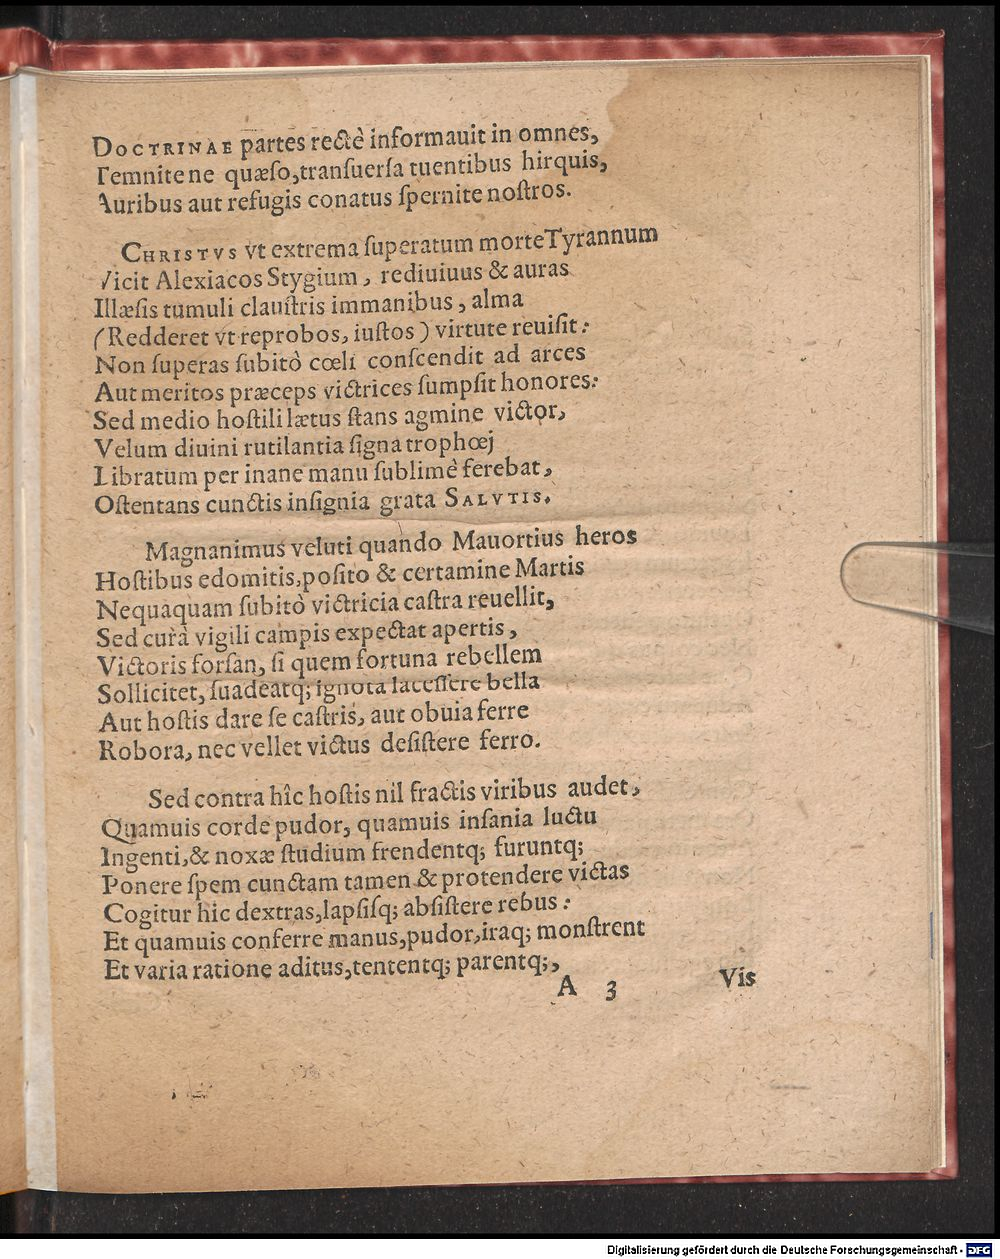 DOCTRINAE partes rectè informauit in omnes,
Temnite ne quæſo, tranſuerſa tuentibus hirquis,
Auribus aut refugis conatus ſpernite noſtros.
CHRISTVS vt extrema ſuperatum morte Tyrannum
Vicit Alexiacos Stygium, rediuiuus & auras
Illæſis tumuli clauſtris immanibus, alma
(Redderet vt reprobos, iuſtos) virtute reuiſit:
Non ſuperas ſubitò cœli conſcendit ad arces
Aut meritos præceps victrices ſumpſit honores:
Sed medio hoſtili lætus ſtans agmine victor,
Velum diuini rutilantia ſigna trophœj
Libratum per inane manu ſublimè ferebat,
Oſtentans cunctis inſignia grata SALVTIS.
Magnanimus veluti quando Mauortius heros
Hoſtibus edomitis, poſito & certamine Martis
Nequaquam ſubitò victricia caſtra reuellit,
Sed curà vigili campis expectat apertis,
Victoris forſan, ſi quem fortuna rebellem
Sollicitet, ſuadeatq; ignota laceſſere bella
Aut hoſtis dare ſe caſtris, aut obuia ferre
Robora, nec vellet victus deſiſtere ferro.
Sed contra hîc hoſtis nil fractis viribus audet,
Quamuis corde pudor, quamuis inſania luctu
Ingenti, & noxæ ſtudium frendentq; furuntq;
Ponere ſpem cunctam tamen & protendere victas
Cogitur hic dextras, lapſiſq; abſiſtere rebus:
Et quamuis conferre manus, pudor, iraq; monſtrent
Et varia ratione aditus, tententq; parentq;,
A 3 Vis
Digitalisierung gefördert durch die Deutsche Forschungsgemeinschaft - DFG